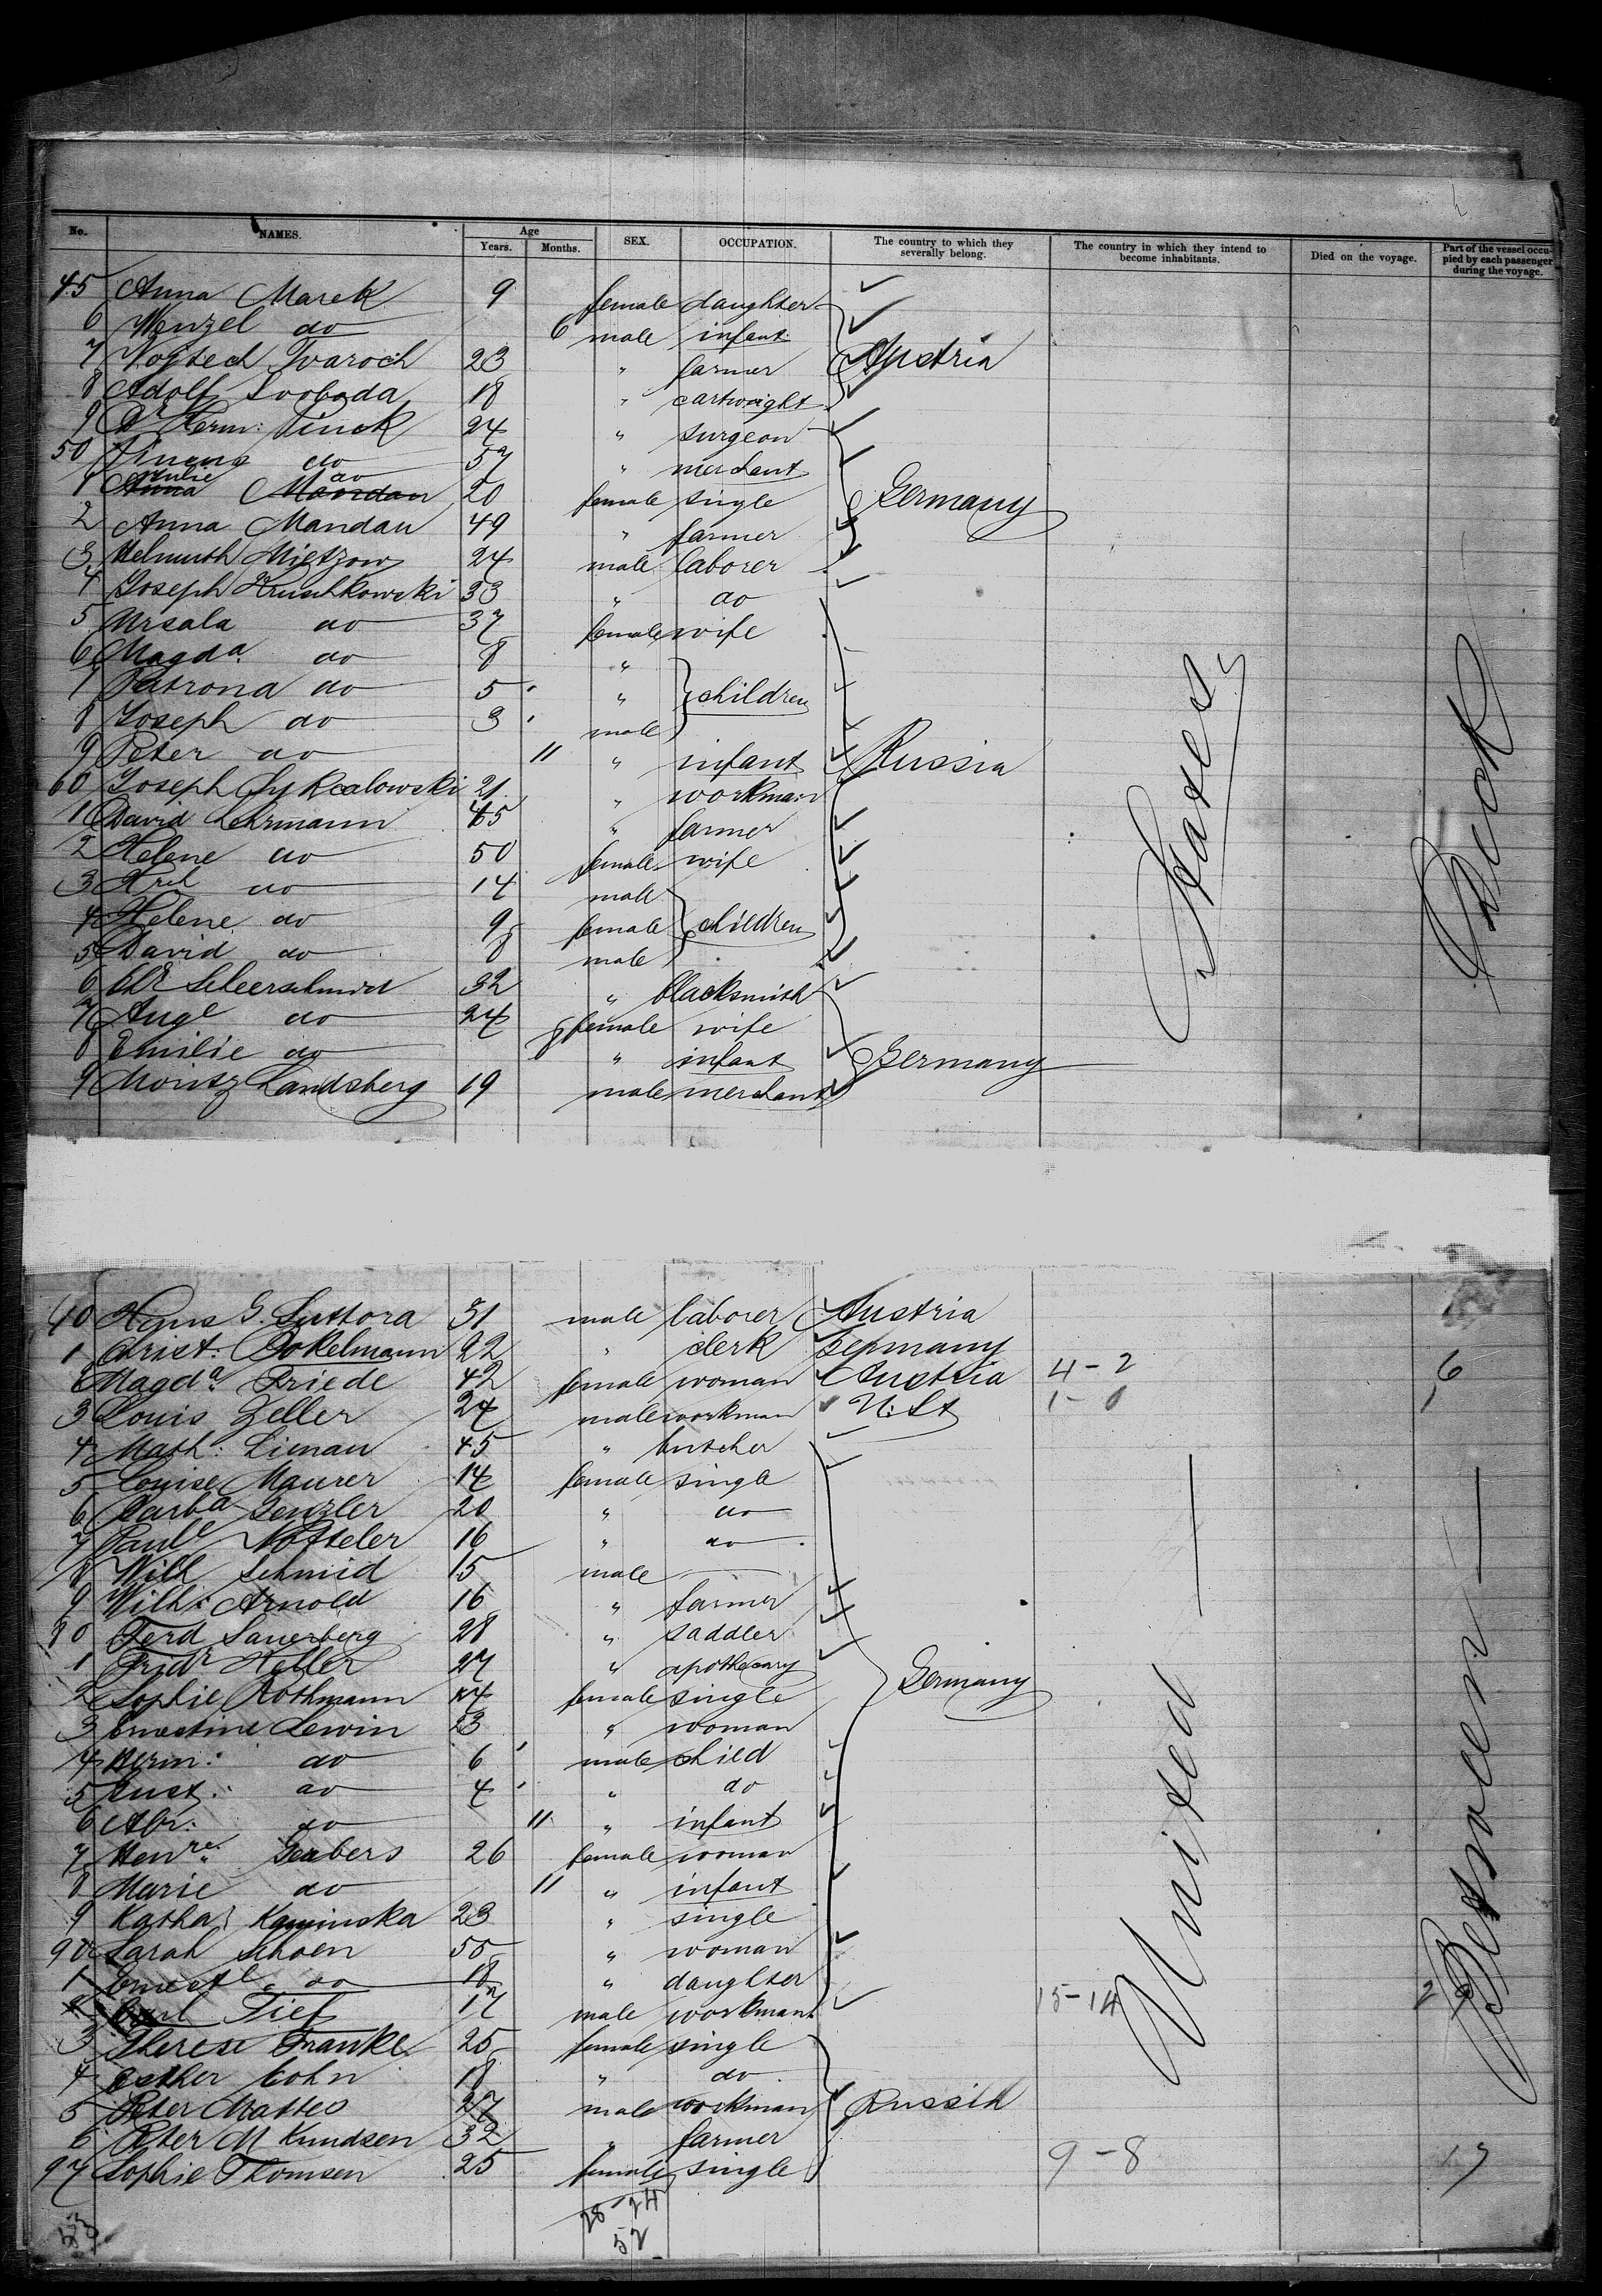 No. NAMES. Age Years. Months. SEX. OCCUPATION. The country to which they severally belong. The country in which they intend to become inhabitants. Died on the voyage. Part of the vessel occupied by each passenger during the voyage.
45 Anna Marek 9 female daughter
6 Wenzel do 6 male infant
7 Vojtech Tvaroch 23 " farmer Austria
8 Adolf Svoboda 18 " cartwright
9 Dr Herm: Tuick 24 " surgeon
50 do 57 " merchant
1 Anna Maordan Julie do 20 female single Germany
2 Anna Mandau 49 " farmer
3 Helmuth Mietzow 24 male laborer
4 Joseph Kruschkowski 33 " do
5 Ursala do 37 female wife
6 Magda. do 8 "
7 Patrona do 5 " children
8 Joseph do 3 male
9 Peter do 11 " infant Russia
60 Joseph Sykcalowski 21 " workman
1 David Lehrmann 45 " farmer
2 Helene do 50 female wife
3 do 14 male
4 Helene do 9 female children
5 David do 8 male
6 Chr Scheerschmidt 32 " blacksmith
7 Auge do 24 female wife
8 Emilie do 8 " infant Germany
9 Moritz Landsberg 19 male merchant
States
Deck
40 Hans G. Suttora 31 male laborer Austria
1 Christ: Bokelmann 22 " clerk Germany
Magda. Priede 42 female woman Austria 4-2 6
3 Louis Zeller 24 male workman U. St 1-0 1
4 Math: Liman 45 " butcher
5 Louise Maurer 14 female single
6 Barba Genzler 20 " do
7 Paule Notteler 16 " do
8 Wilh Schmid 15 male
9 Wilh: Arnold 16 " farmer
80 Ferd Sauerberg 28 " saddler
1 Fridr Heller 27 " apothecary
2 Sophie Rothmann 44 female single Germany
3 Ernestine Lewin 23 " woman
4 Herm: do 6 male child
5 Gust: do 4 " do
6 Abr: do 11 " infant
7 Henre. Gerbers 26 female woman
8 Marie do 11 " infant
9 Katha: Kaminska 23 " single
90 Sarah Schoen 55 " woman
1 Ernestе do 18 " daughter
2 Carl Tief 17 male workman 15-14 29
3 Therese Franke 25 female single
4 Esther Cohn 18 " do
5 Peter Mattes 27 male workman Russia
6 Peter M Knudsen 32 " farmer
97 Sophie Thomsen 25 female single 9-8 17
United
Between
28-24
52
53